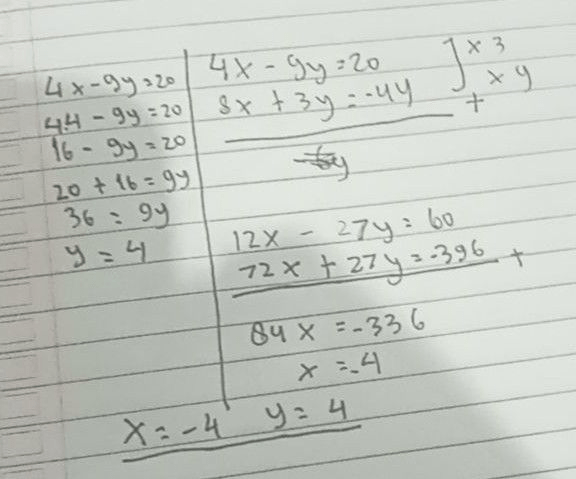 4x - 9y = 20
4.4 - 9y = 20
16 - 9y = 20
20 + 16 = 9y
36 = 9y
y = 4
4x - 9y = 20 ] x 3
8x + 3y = -44 x 9 +
12x - 27y = 60
72x + 27y = -396 +
84x = -336
x = -4
x = -4 y = 4